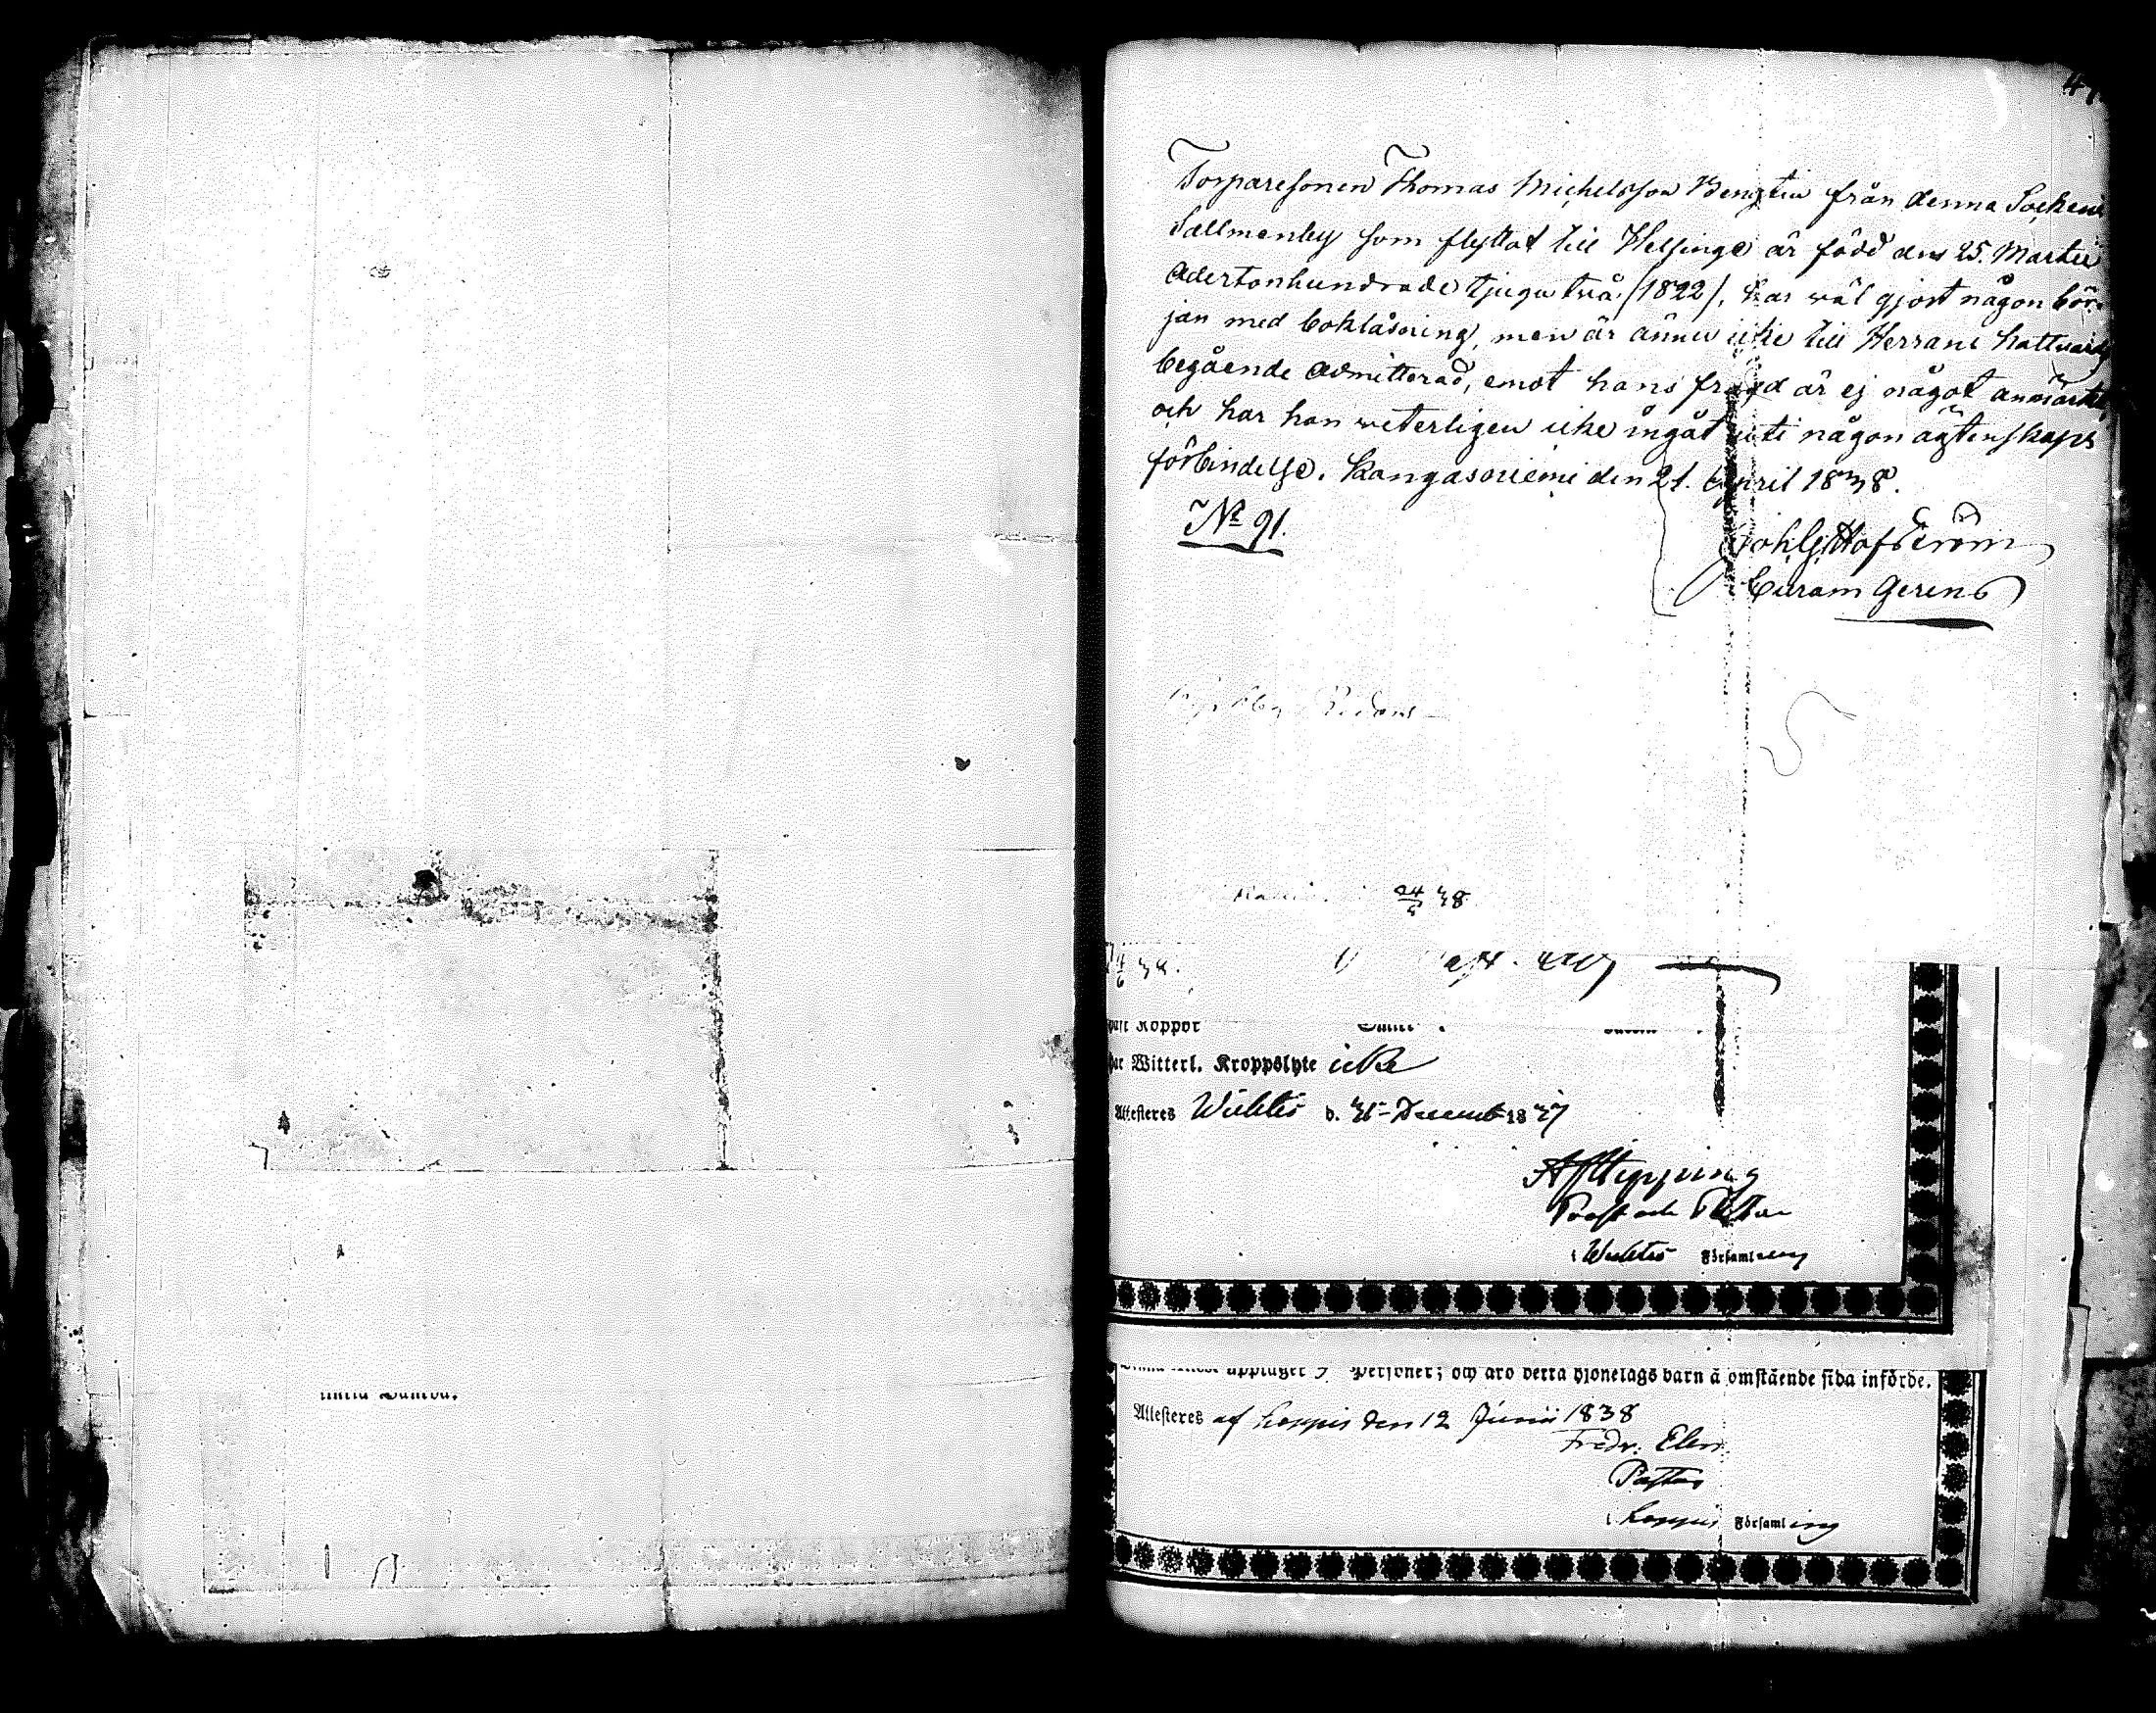 47
Torparesonen Thomas Michelsson Bengtin från denna Sockens
Salmenby som flyttat till Helsinge är född den 25. Martii
Adertonhundrade tjugu två (1822), har wäl gjort någon bör-
jan med boklåsning, men är ännu icke till Herrans Nattward
begående admitterad, emot hans frägd är ej något anmärkt,
och har han weterligen icke ingåt uti någon äktenskaps
förbindelse. Kangasniemi den 21. April 1838.
No 91.
Joh. G. Hofström
Curam Gerens
24/5 38
haft Koppor
har Witterl. Kroppslyte icke
Attesteres Wichtis d. 31 December 1837
Prost och Pastor
i Wichtis Församling
upptager 3 Personer; och äro detta hjonelags barn å omstående sida införde.
Attesteres af Loppis den 12 Junii 1838
Fredr:
Pastor
i Loppis Församling